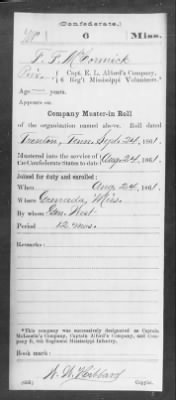 (Confederate.)
6 Miss.
Capt. E. L. Alford's Company,
Priv., 6 Reg't Mississippi Volunteers.*
Age — years.
Appears on
Company Muster-in Roll
of the organization named above. Roll dated
Trenton, Tenn. Sept. 24, 1861.
Mustered into the service of the Confederate States to date Aug 24, 1861.
Joined for duty and enrolled:
When Aug 24, 1861.
Where Grenada, Miss.
By whom Gen. West
Period 12 mos.
Remarks:
*This company was successively designated as Captain
Company, Captain Alford's Company, and Com-
pany 6th Regiment Mississippi Infantry.
Book mark:
Copyist.